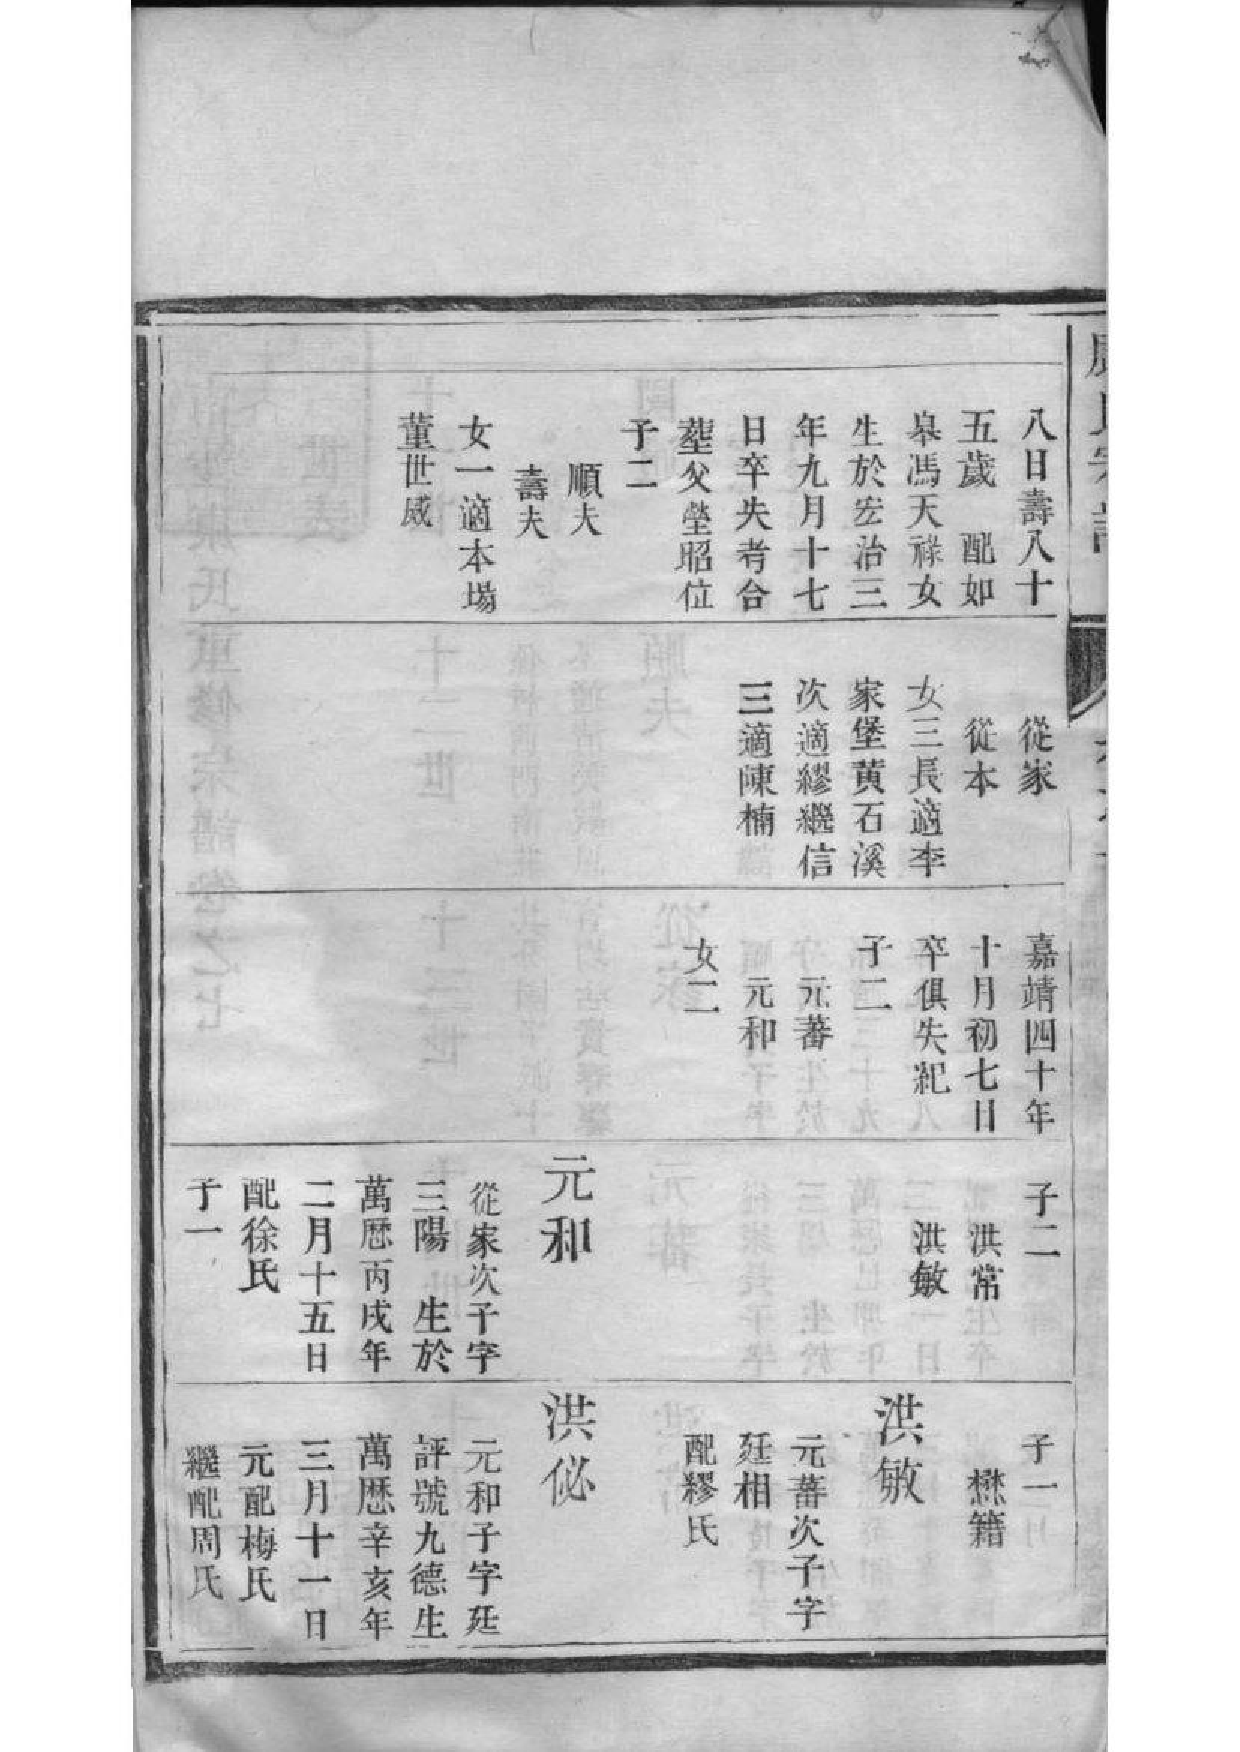 八日壽八十
五歲　配如
皋馮天祿女
生於宏治三
年九月十七
日卒失考合
塟父塋昭位
子二
順夫
壽夫
女一適本場
董世威
從家
從本
女三長適李
家堡黃石溪
次適繆繼信
三適陳楠
嘉靖四十年
十月初七日
卒俱失紀
子二
元蕃
元和
女二
子二
洪常
洪敏
元和
從家次子字
三陽　生於
萬歷丙戌年
二月十五日
配徐氏
子一
子一
懋籍
洪敏
元蕃次子字
廷相
配繆氏
洪佖
元和子字廷
評號九德生
萬歷辛亥年
三月十一日
元配梅氏
繼配周氏